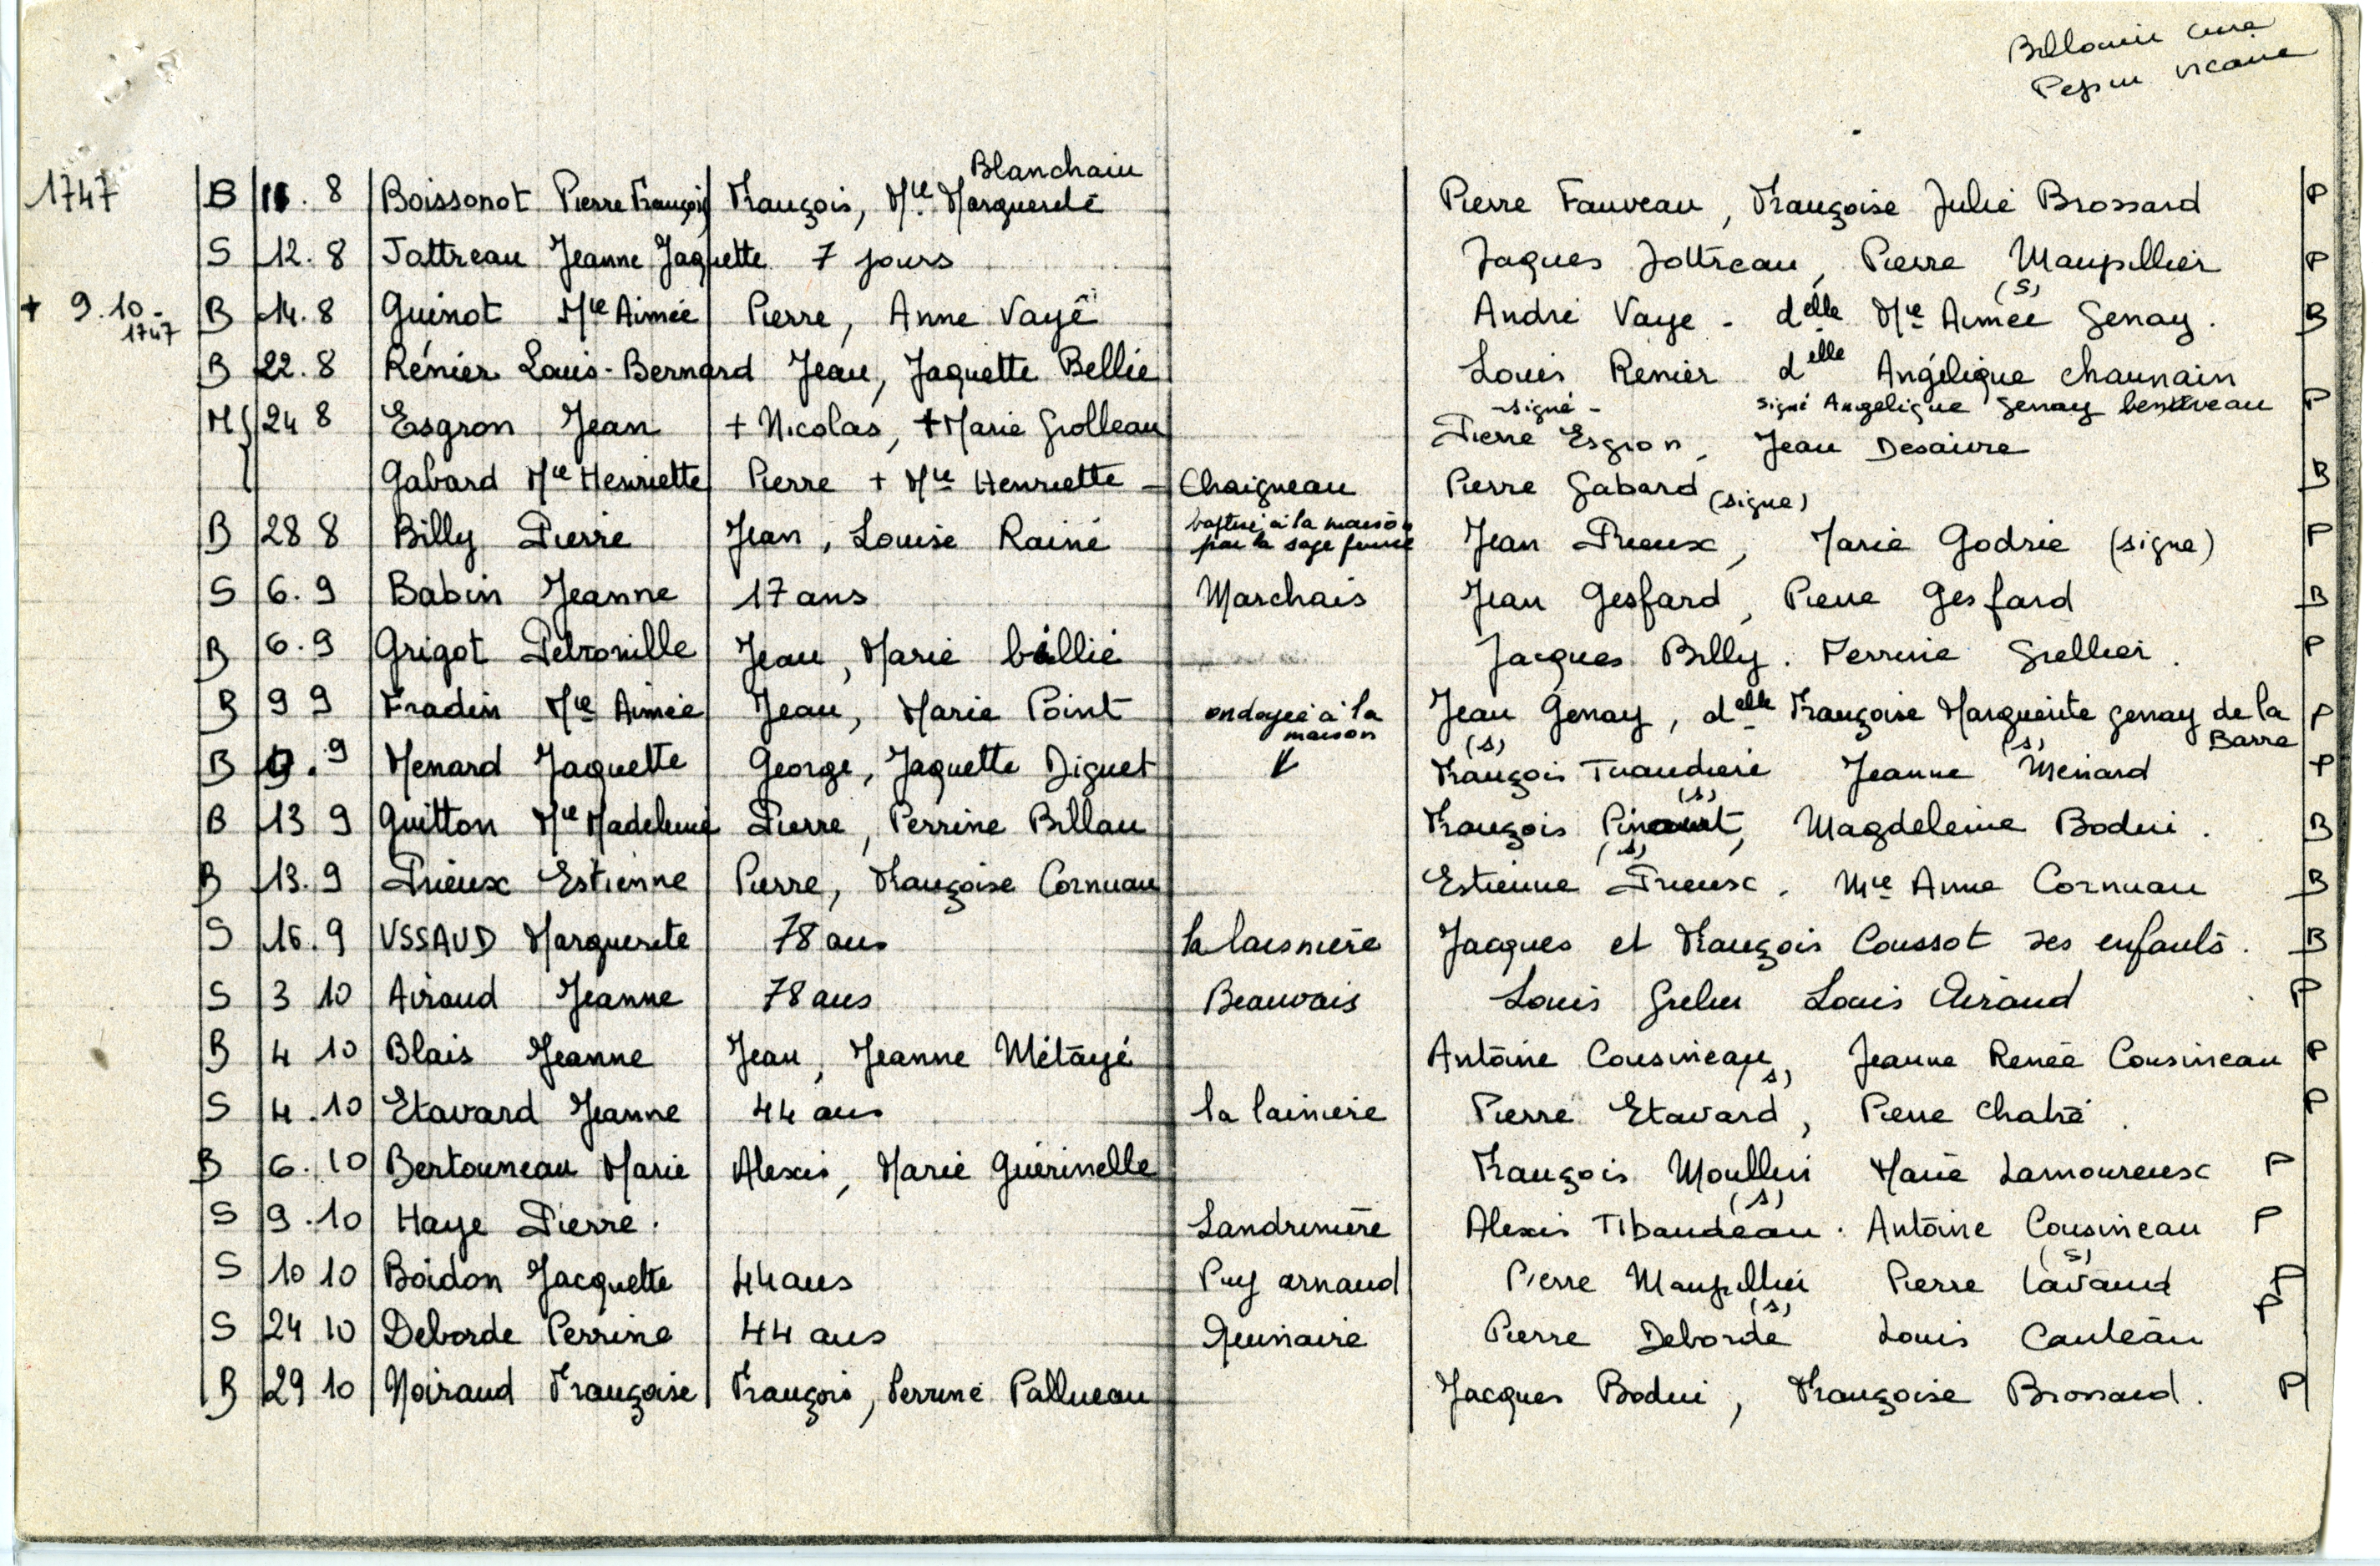 curé
vicaire
Blanchain
1747 B 11. 8 Boissonot Pierre François François, Mie Marguerite Pierre Fauveau, Françoise Julie Brossard P
S 12. 8 Jattreau Jeanne Jaquette 7 jours Jaques Jottreau, Pierre Maupillier P
+ 9.10- 1747 B 14. 8 Guinot Mie Aimée Pierre, Anne Vayé André Vaye - delle Mie Aimée (s) Genay. B
B 22. 8 Rénier Louis-Bernard Jean, Jaquette Bellie Louis Renier delle Angélique chaunain
-signé- signé Angélique Genay P
M 24 8 Esgron Jean + Nicolas, + Marie Grolleau Pierre Esgron, Jean Desaivre
Gabard Mie Henriette Pierre + Mie Henriette - Chaigneau Pierre Gabard (signe) B
B 28 8 Billy Pierre Jean, Louise Rainé baptisé à la maison par la sage femme Jean Prieux, Marie Godrie (signe) P
S 6. 9 Babin Jeanne 17 ans Marchais Jean Gesfard, Pierre Gesfard B
B 6. 9 Grigot Petronille Jean, Marie billié Jacques Billy. Perrine Grellier. P
B 9 9 Fradin Mie Aimée Jean, Marie Point ondoyée à la maison Jean Genay, delle Françoise Marguerite Genay de la Barre P
(s) (s)
B 9. 9 Menard Jaquette George, Jaquette Diguet François Tuaudiere Jeanne Menard P
(s)
B 13 9 Guitton Mie Madeleine Pierre, Perrine Billau François Magdeleine Bodin. B
(s)
B 13. 9 Prieux Estienne Pierre, Françoise Cornuau Estienne Prieux. Mie Anne Cornuau B
S 16. 9 USSAUD Marguerite 78 ans la laisniere Jacques et François Coussot ses enfants. B
S 3 10 Airaud Jeanne 78 ans Beauvais Louis Grelier Louis Airaud P
B 4 10 Blais Jeanne Jean, Jeanne Métayé Antoine Cousineau, Jeanne Renée Cousineau P
(s)
S 4. 10 Etavard Jeanne 44 ans la lainiere Pierre Etavard, Pierre Chatré. P
B 6. 10 Bertouneau Marie Alexis, Marie Guérinelle François Moullin Marie Lamoureux P
(s)
S 9. 10 Haye Pierre. Landreniére Alexis Tibaudeau. Antoine Cousineau P
(s)
S 10 10 Boidon Jacquette 44 ans Puy arnaud Pierre Maupillier Pierre Lavaud P
(s)
S 24 10 Deborde Perrine 44 ans Pierre Deborde Louis Cauleau P
B 29 10 Noiraud Françoise François, Perrine Pallueau Jacques Bodin, Françoise Brossard. P